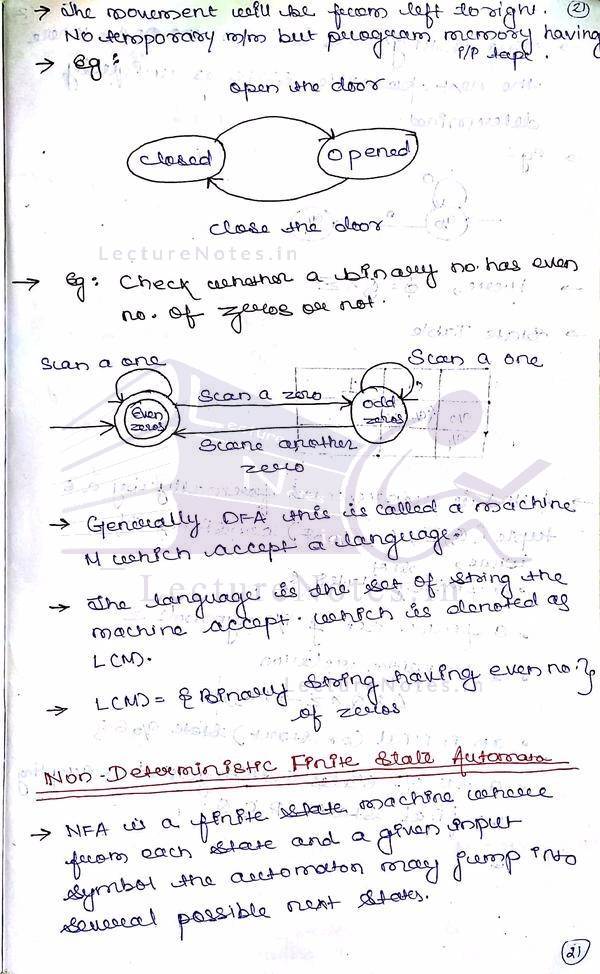 → The movement will be from left to right. (21)
No temporary m/m but program memory having
i/p tape.
→ Eg:
open the door
closed opened
close the door
LectureNotes.in
→ Eg: Check whether a binary no. has even
no. of zeros or not.
Scan a one Scan a one
Scan a zero
Even zeros odd zeros
Scane another
zero
→ Generally DFA this is called a machine
M which accept a language.
→ The language is the set of string the
machine accept. which is denoted as
L(M).
LectureNotes.in
→ L(M) = { Binary string having even no. }
of zeros
Non-Deterministic Finite State Automata
→ NFA is a finite state machine where
from each state and a given input
symbol the automaton may jump into
several possible next states.
(21)